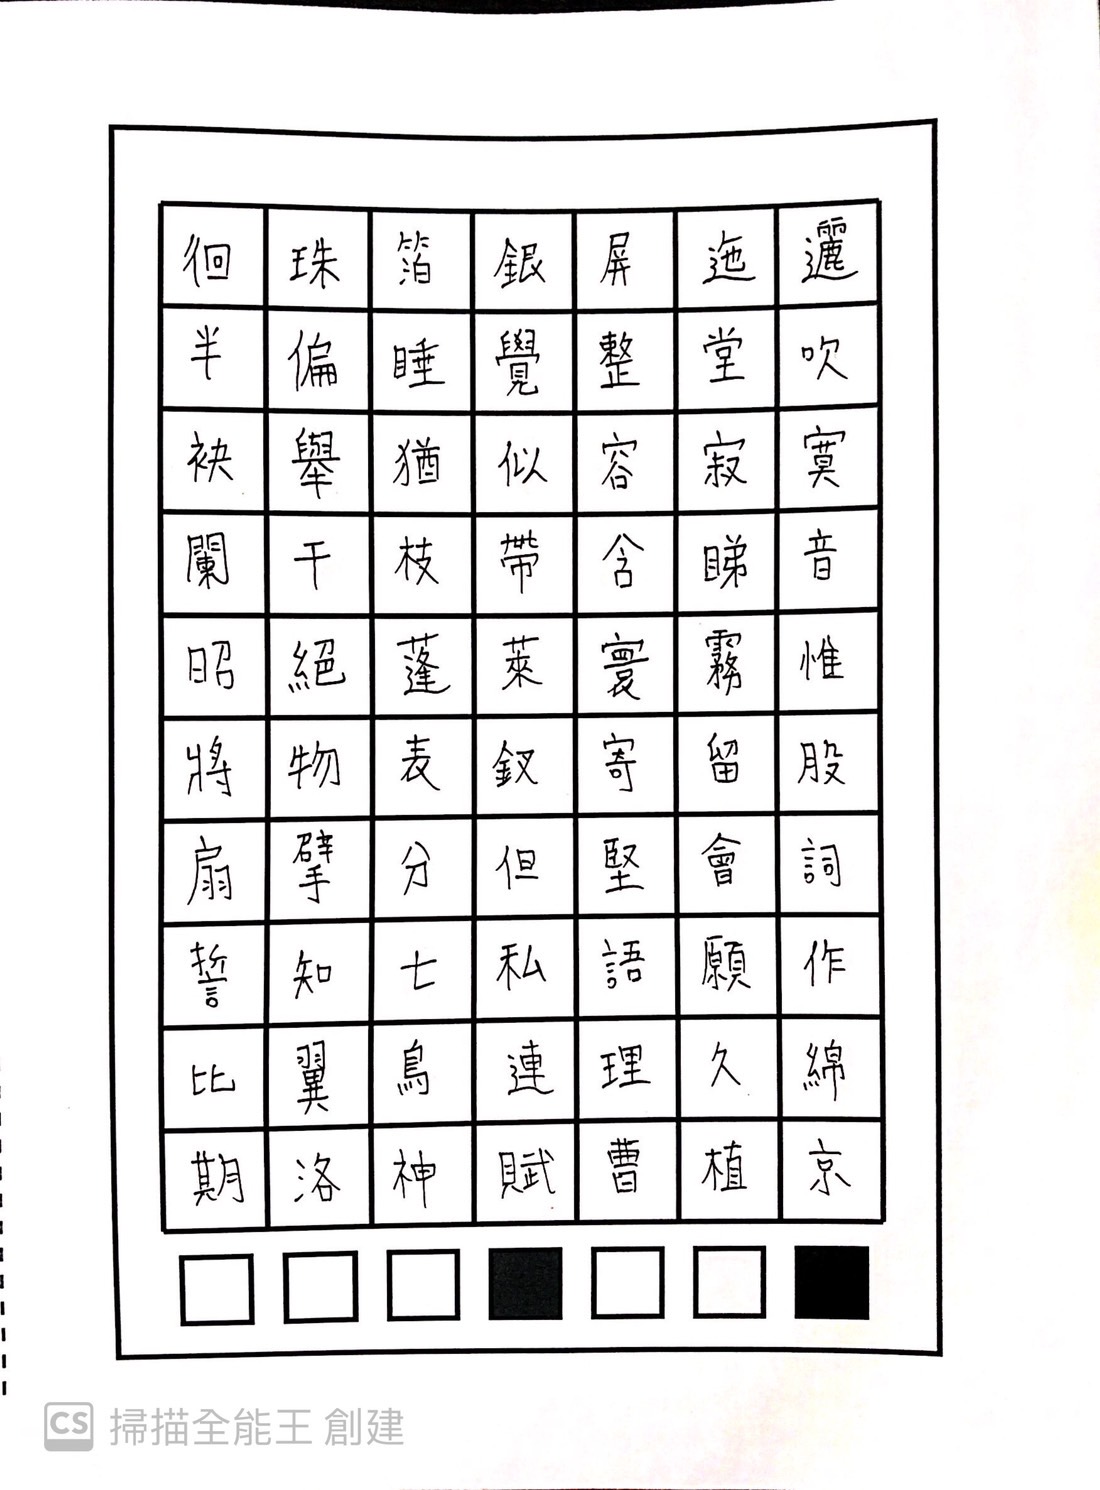 徊珠箔銀屏迤邐
半偏睡覺整堂吹
袂舉猶似容寂寞
闌干枝帶含睇音
昭絕蓬萊寰霧惟
將物表釵寄留股
扇擘分但堅會詞
誓知七私語願作
比翼鳥連理久綿
期洛神賦曹植京
CS 掃描全能王 創建